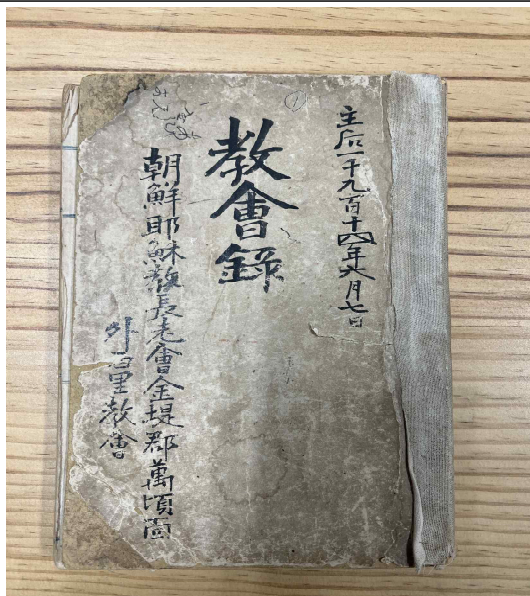 ①
主后一千九百十四年六月七日
教會錄
朝鮮耶穌教長老會金堤郡萬頃面
外量教會